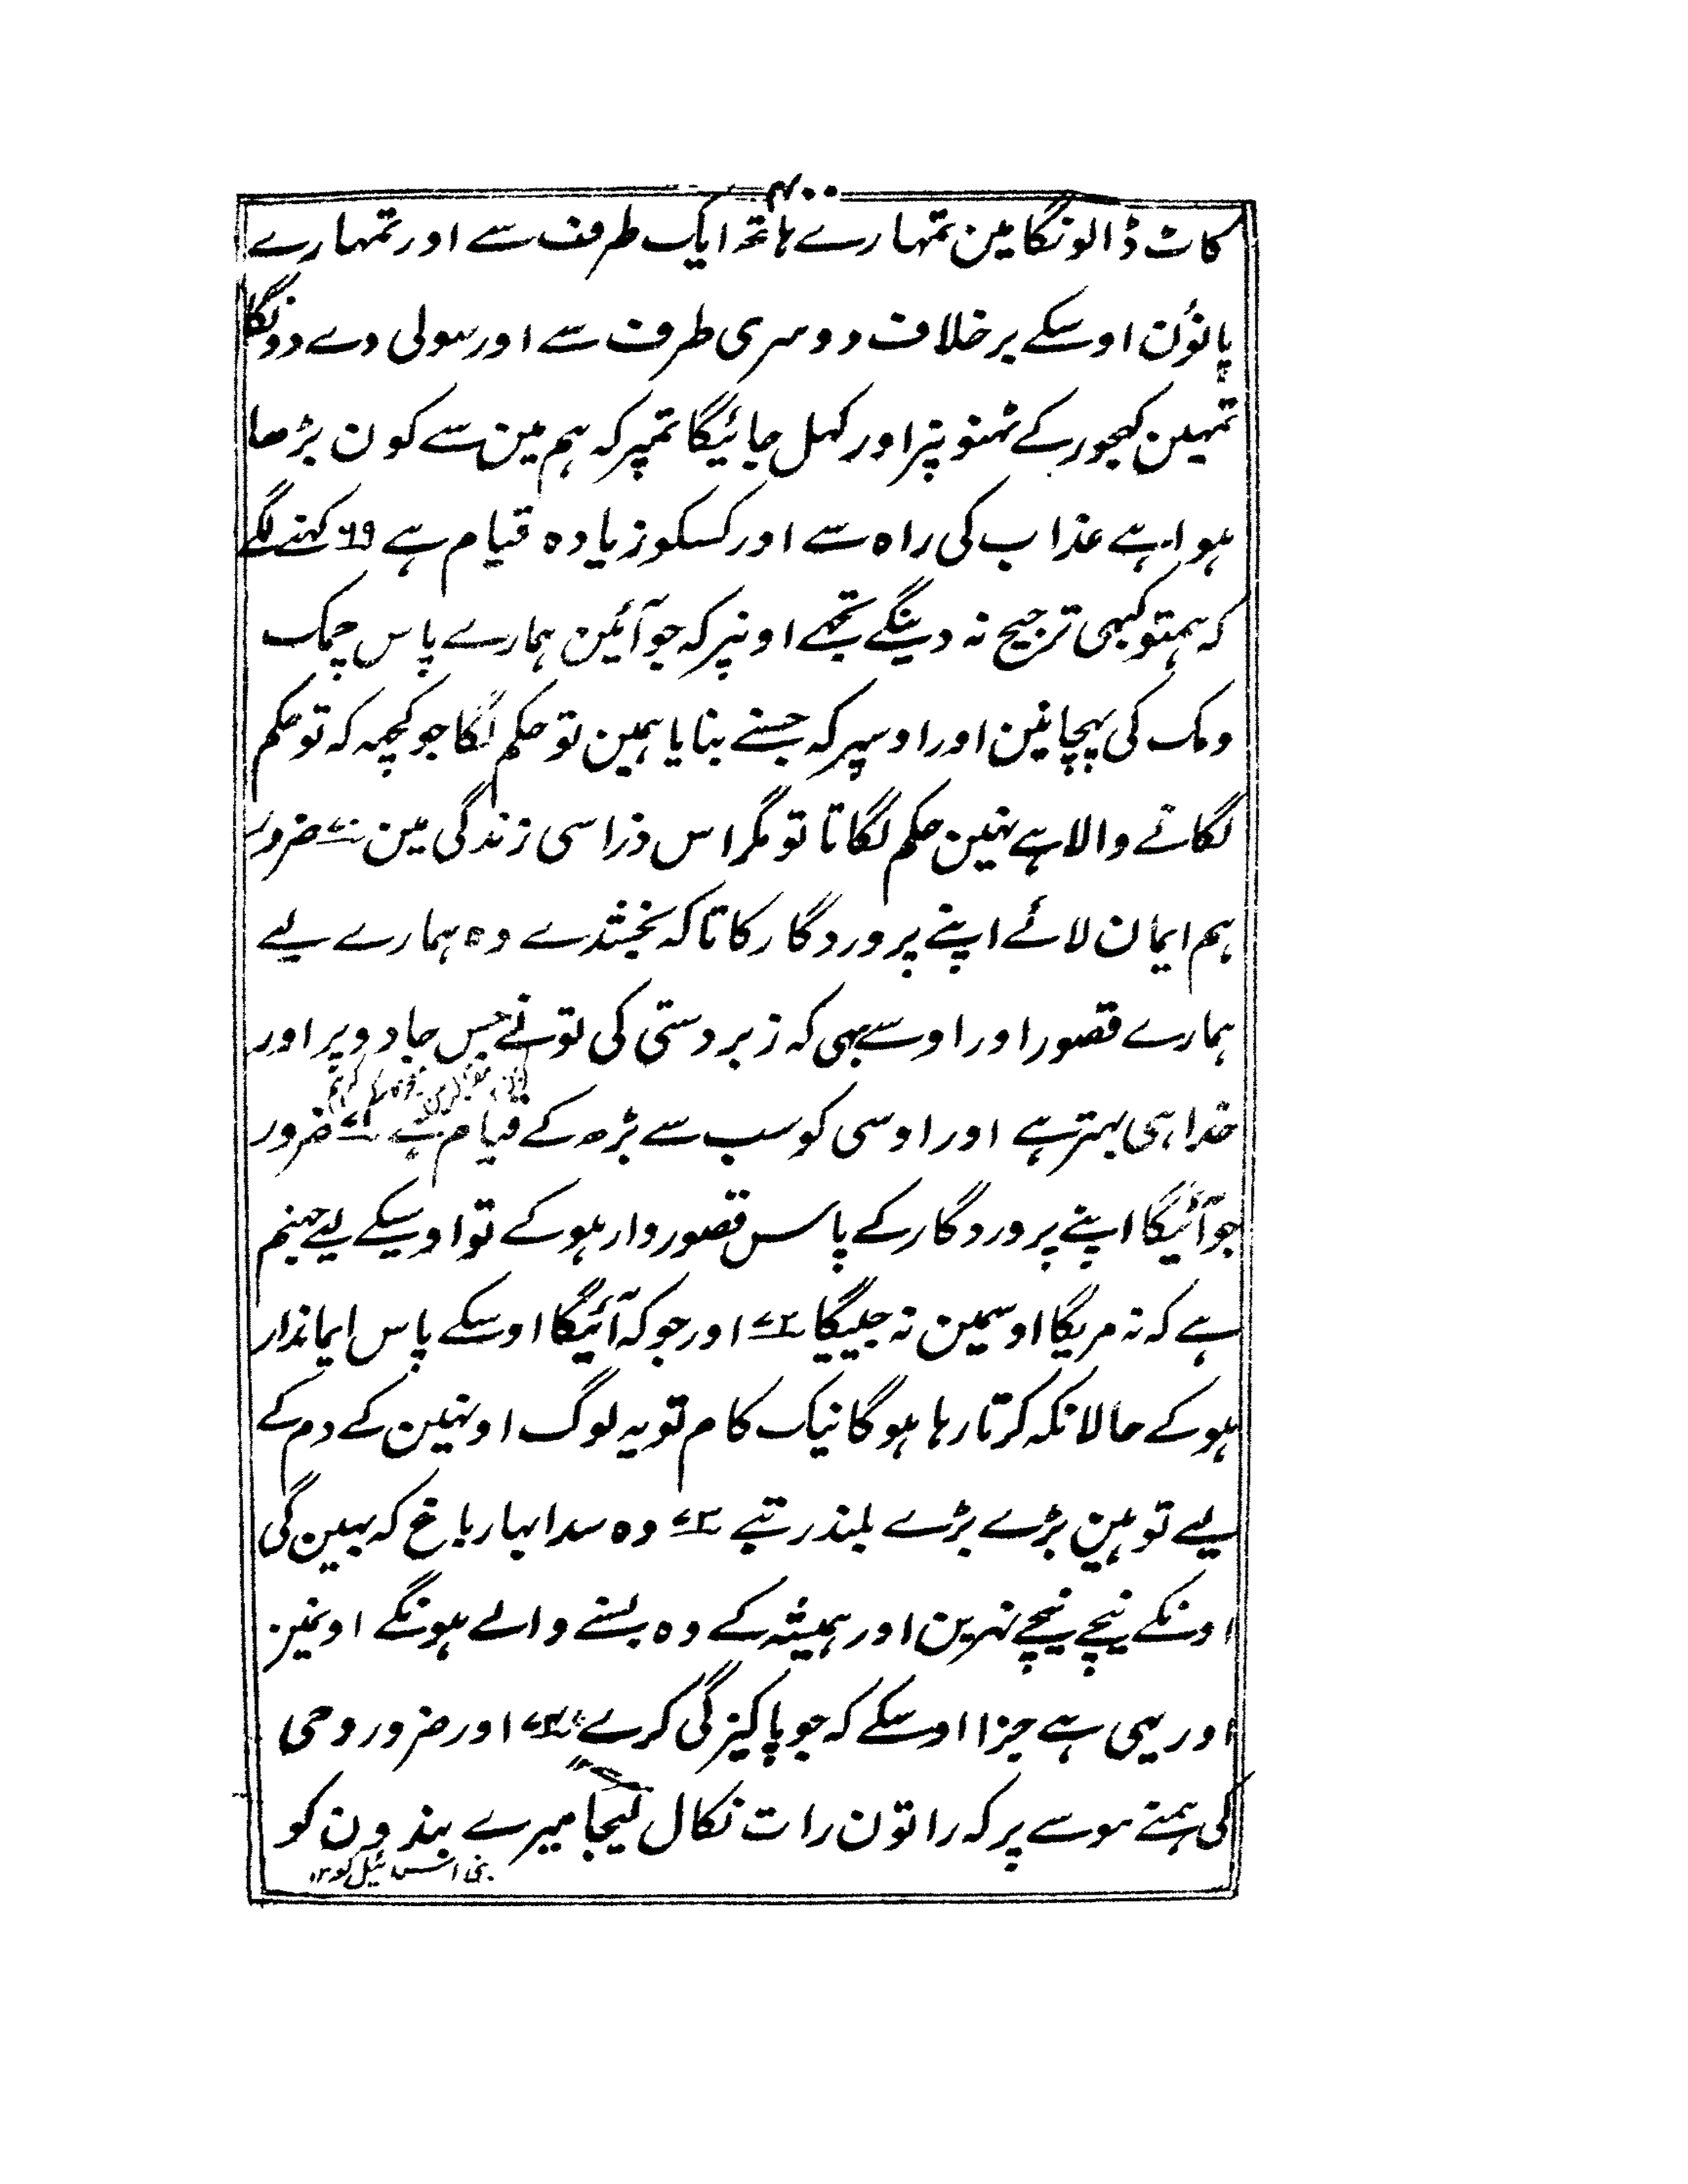 ۴۰۰
کاٹ ڈالونگا مین تمہارے ہاتھ ایک طرف سے اور تمہارے
پانؤن اوسکے برخلاف دوسری طرف سے اور سولی دے دونگا
تمہین کھجور کے ٹہنو نپر اور کہل جائیگا تمپر کہ ہم مین سے کون بڑھا
ہوا ہے عذاب کی راہ سے اور کسکو زیادہ قیام ہے ۶۹ کہنے لگے
کہ ہمتو کبھی ترجیح نہ دینگے تجھے اونپر کہ جو آئین ہمارے پاس چمک
دمک کی پہچانین اور اوسپر کہ جسنے بنایا ہمین تو حکم لگا جو کچھ کہ تو حکم
لگانے والا ہے نہین حکم لگاتا تو مگر اس ذرا سی زندگی مین ۷۰ ضرور
ہم ایمان لائے اپنے پروردگار کا تاکہ بخشدے وہ ہمارے لیے
ہمارے قصور اور اوسے بھی کہ زبردستی کی تو نے جس جادو پر اور
خدا ہی بہتر ہے اور اوسی کو سب سے بڑھ کے قیام ہے ۷۱ ضرور
جو آئیگا اپنے پروردگار کے پاس قصوروار ہو کے تو اوسکے لیے جہنم
ہے کہ نہ مریگا اوسمین نہ جلیگا ۷۲ اور جو کہ آئیگا اوسکے پاس ایماندار
ہو کے حالانکہ کرتا رہا ہو گا نیک کام تو یہ لوگ اونہین کے دم کے
لیے تو ہین بڑے بڑے بلند رتبے ۷۳ وہ سدا بہار باغ کہ بہین گی
اونکے نیچے نیچے نہرین اور ہمیشہ کے وہ بسنے والے ہونگے اونمین
اور یہی ہے جزا اوسکے کہ جو پاکیزگی کرے ۷۴ اور ضرور وحی
کی ہمنے موسے پر کہ راتون رات نکال لیجا میرے بندون کو
بنی اسرائیل کو ۱۲